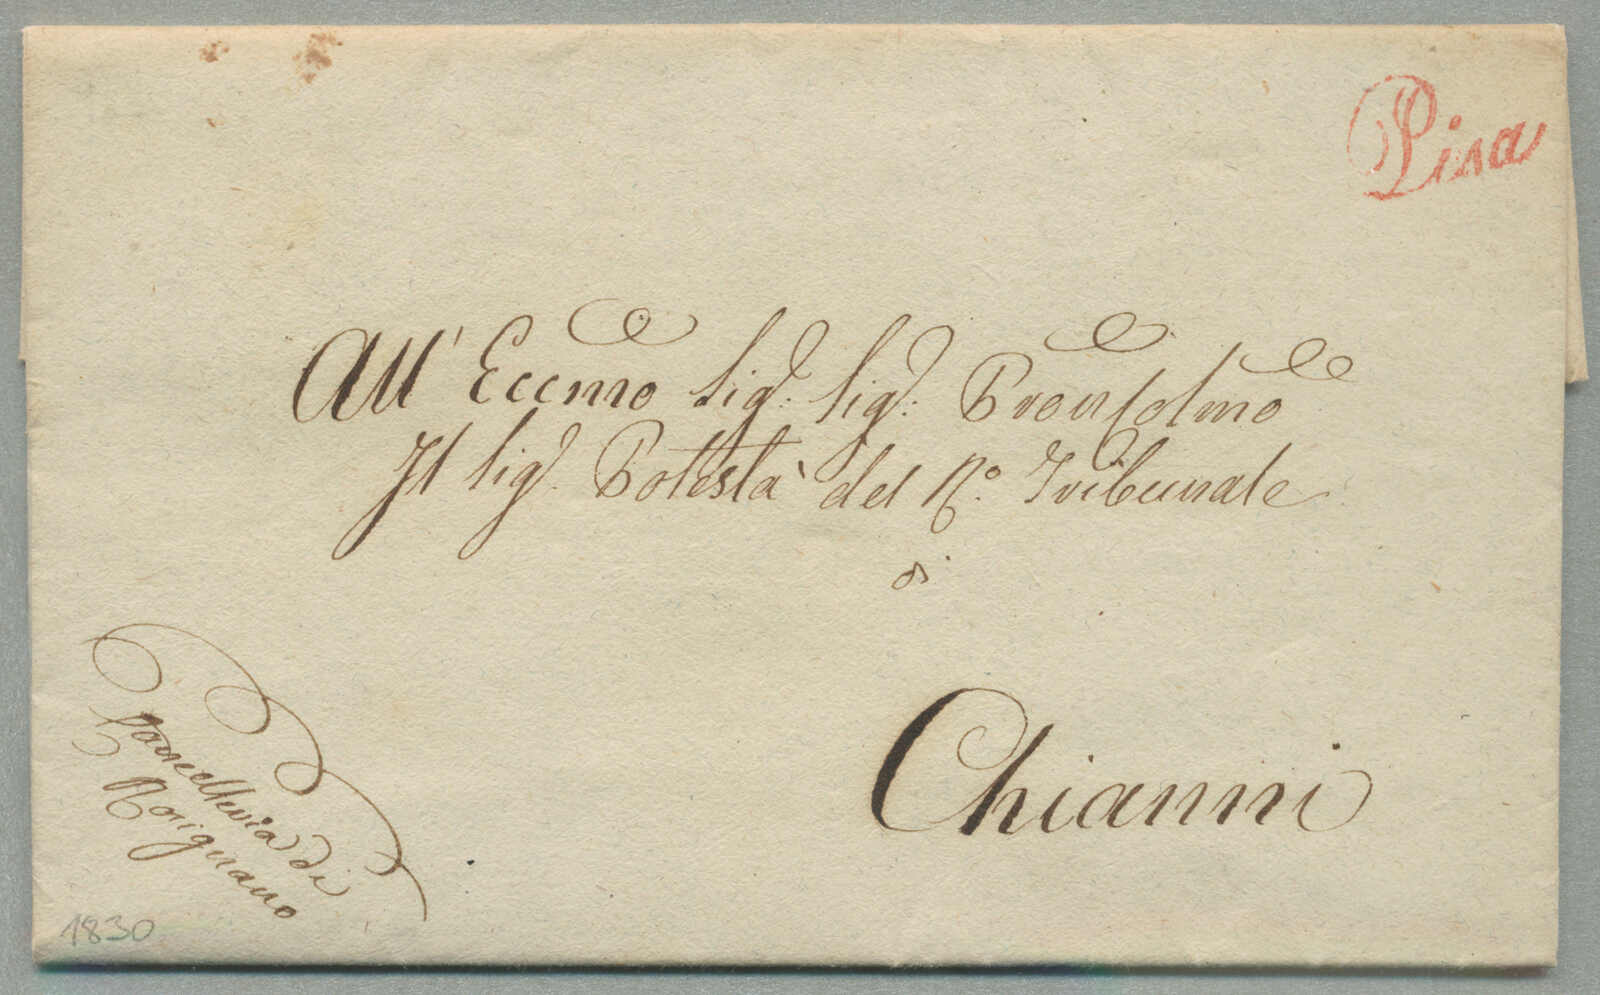 Pisa
All' Eccmo Sig.r Sig.r Pron Colmo
Il Sig.r Potestà del R.o Tribunale
di
Chianni
Cancelleria di
Rosignano
1830